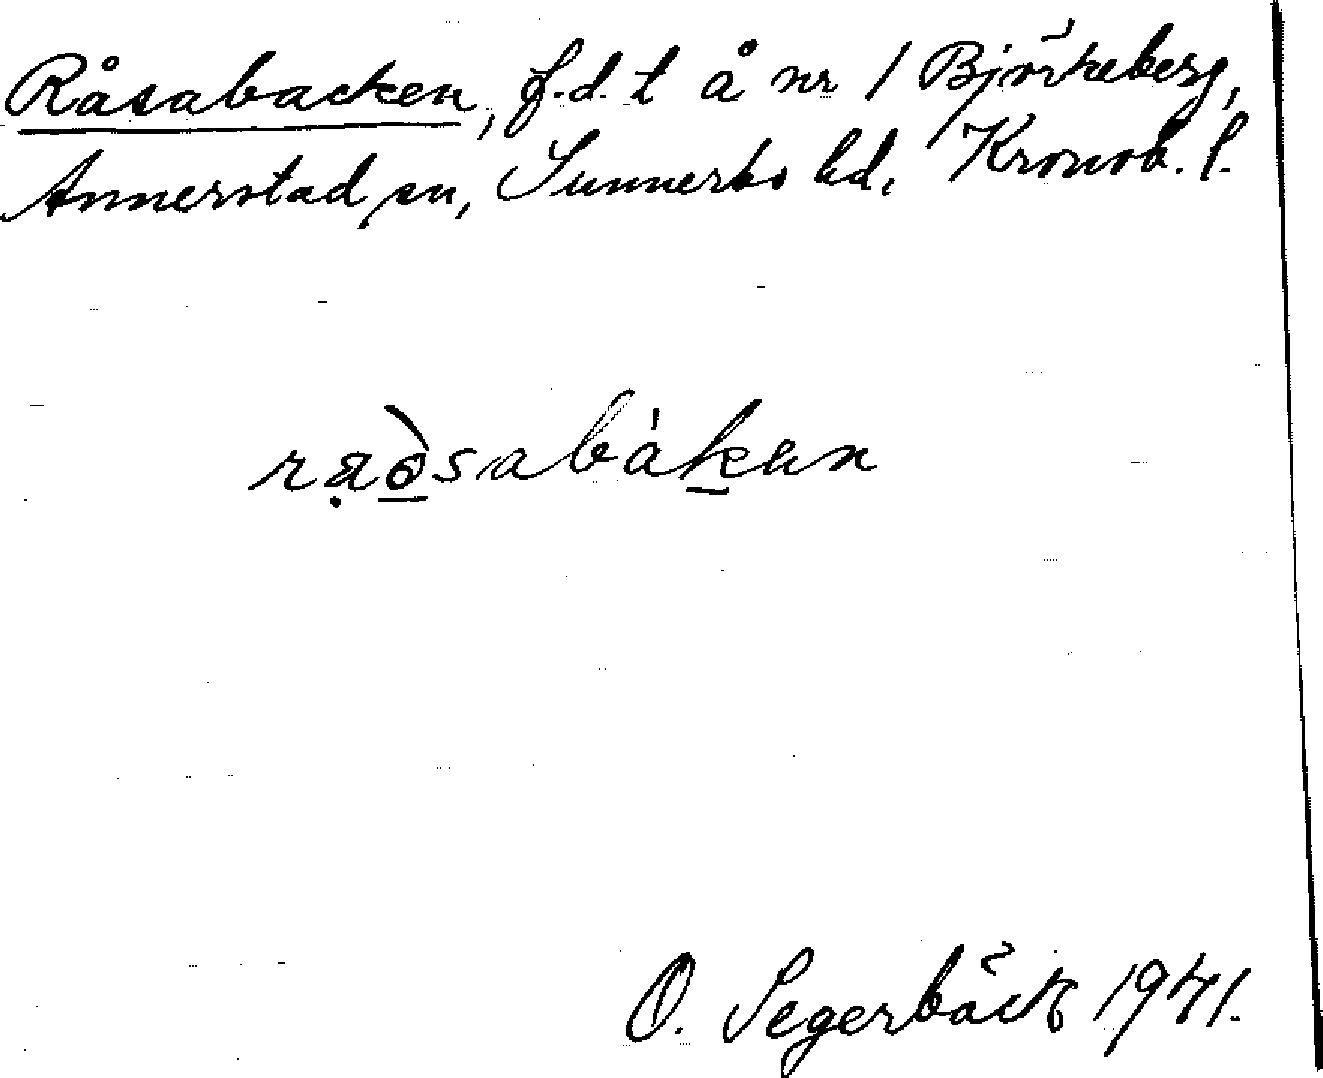 Råsabacken, f.d. t å nr 1 Björkeberg,
Annerstad sn, Sunnerbo hd, Kronob. l.
O. Segerbäck 1941.